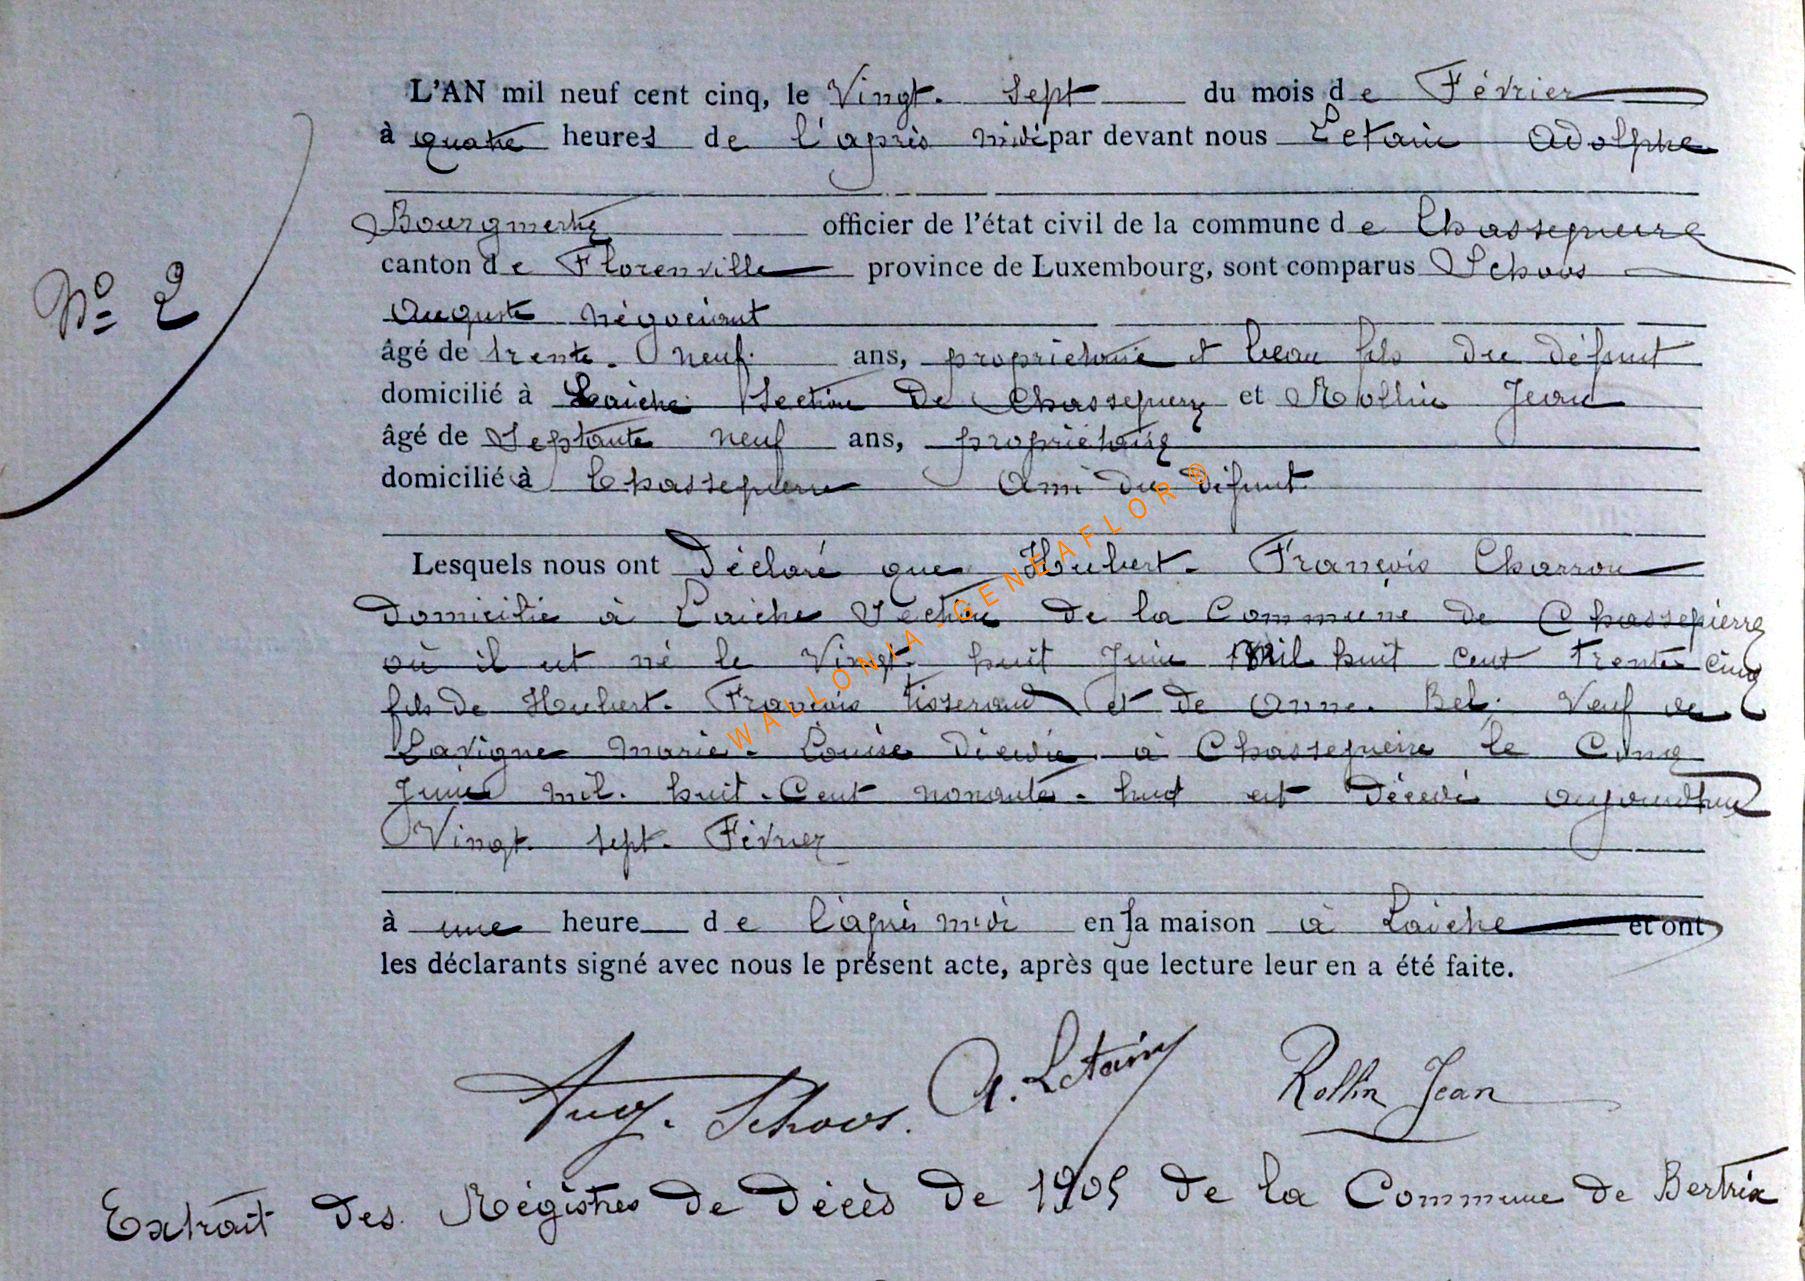 L'AN mil neuf cent cinq, le Vingt. Sept du mois de Février
à quatre heures de l'après midi par devant nous Letain Adolphe
Bourgmestre officier de l'état civil de la commune de Chassepierre
canton de Florenville province de Luxembourg, sont comparus Schoos
Auguste négociant
âgé de trente. neuf. ans, propriétaire et beau fils du défunt
domicilié à Laiche Section de Chassepierre et Rollin Jean
âgé de Septante neuf ans, propriétaire
domicilié à Chassepierre Ami du défunt
Lesquels nous ont Déclaré que Hubert. François Charron
domicilié à Laiche Section de la Commune de Chassepierre
où il est né le Vingt. huit Juin mil huit cent trente cinq
fils de Hubert. François tisserand et de Anne. Bel. Veuf de
Lavigne Marie. Louise décédée à Chassepierre le Cinq
Juin mil. huit. Cent nonante. huit est décédé aujourdhui
Vingt. sept. Février
à une heure de l'après midi en sa maison à Laiche et ont
les déclarants signé avec nous le présent acte, après que lecture leur en a été faite.
Nº 2
Aug. Schoos. A. Letain Rollin Jean
Extrait des Régistres de décès de 1905 de la Commune de Bertrix
WALLONIA-GENEAFLOR®